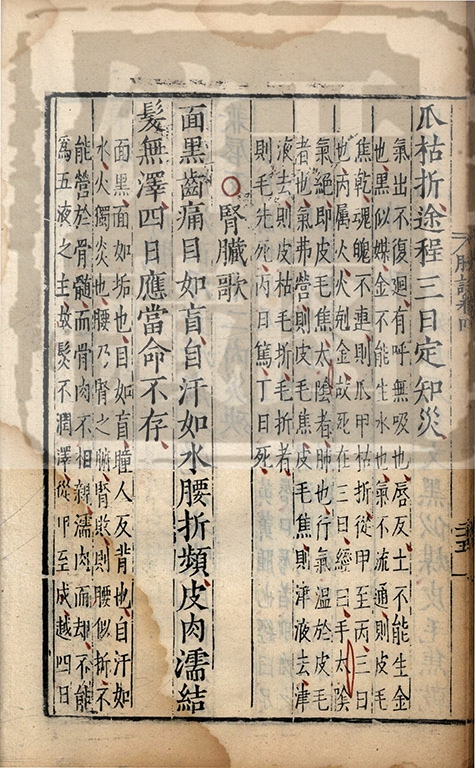 爪枯折途程三日定知災
氣出不復迴有呼無吸也唇反土不能生金
也黑似媒金不能生水也氣不流通則皮毛
焦乾魂魄不連則爪甲枯折從甲至丙三日
也丙屬火火剋金故死在三日經曰手太陰
氣絕即皮毛焦太陰者肺也行氣溫於皮毛
者也氣弗營則皮毛焦皮毛焦則津液去津
液去則皮枯毛折毛折者
則毛先死丙日篤丁日死
○腎臟歌
面黑齒痛目如盲自汗如水腰折頻皮肉濡結
髮無澤四日應當命不存
面黑面如垢也目如盲瞳人反背也自汗如
水火獨炎也腰乃腎之腑腎敗則腰似折不
能營於骨髓而骨肉不相親濡肉而却不能
為五液之主故髮不潤澤從甲至戊越四日
脉訣卷四